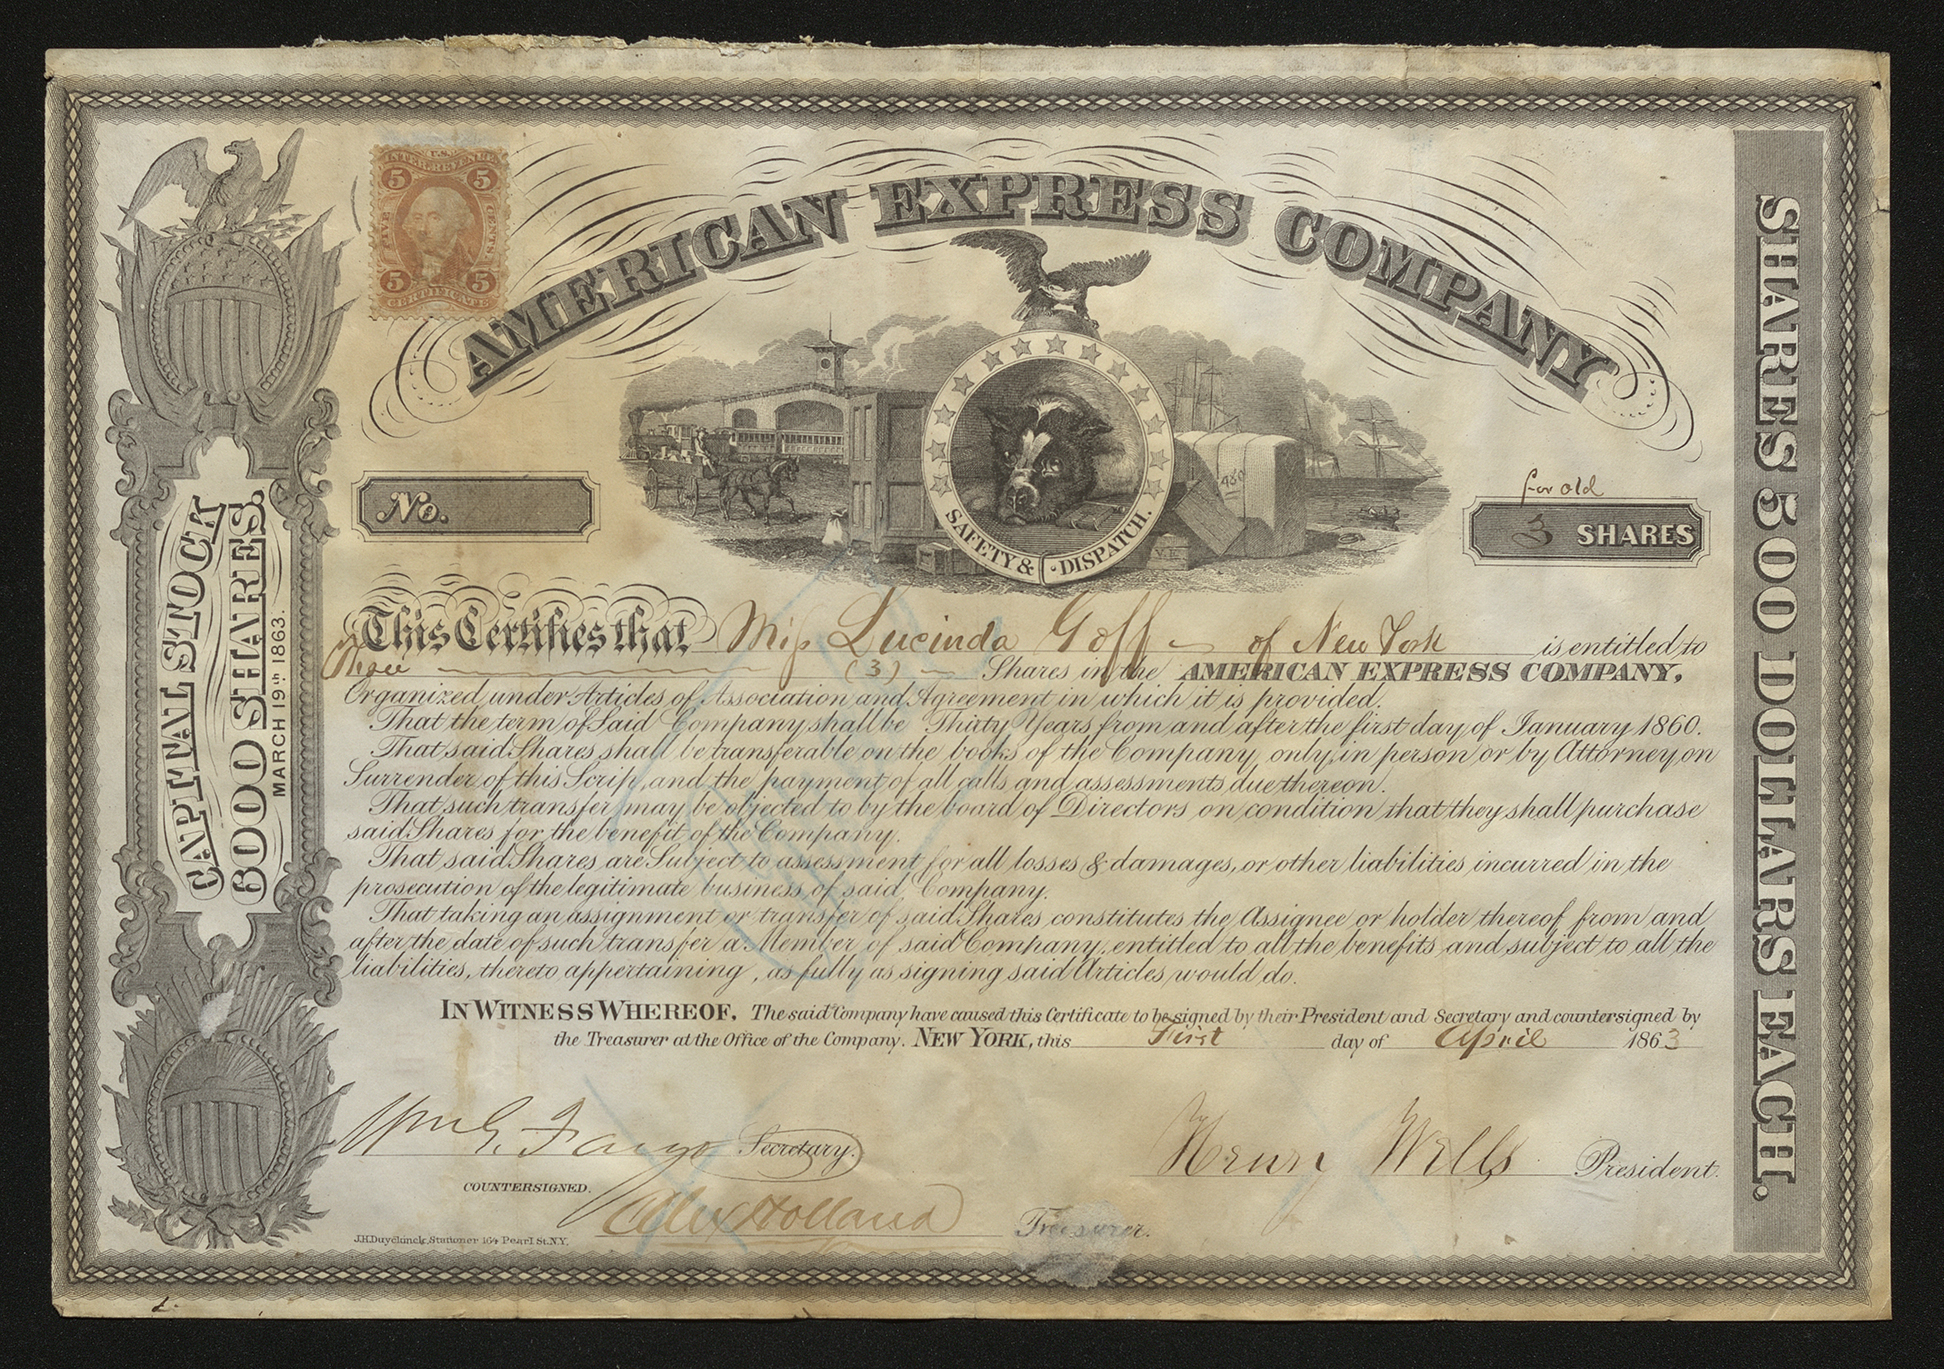 U.S.
INTER. REVENUE
5 5
FIVE CENTS
5 5
CERTIFICATE
AMERICAN EXPRESS COMPANY
SAFETY & DISPATCH.
480
No.
for old
3 SHARES
CAPITAL STOCK
6000 SHARES.
MARCH 19th 1863.
SHARES 500 DOLLARS EACH.
This Certifies that Miss Lucinda Goff of New York is entitled to
Three (3) Shares in the AMERICAN EXPRESS COMPANY,
Organized under Articles of Association and Agreement in which it is provided.
That the term of Said Company shall be Thirty Years from and after the first day of January 1860.
That said Shares shall be transferable on the books of the Company, only, in person or by Attorney on
Surrender of this Scrip, and the payment of all calls and assessments due thereon.
That such transfer may be objected to by the board of Directors on condition that they shall purchase
said Shares for the benefit of the Company.
That said Shares are Subject to assessment for all losses & damages, or other liabilities incurred in the
prosecution of the legitimate business of said Company.
That taking an assignment or transfer of said Shares constitutes the Assignee or holder thereof from and
after the date of such transfer a Member of said Company, entitled to all the benefits and subject to all the
liabilities, thereto appertaining, as fully as signing said Articles would do.
IN WITNESS WHEREOF, The said Company have caused this Certificate to be signed by their President and Secretary and countersigned by
the Treasurer at the Office of the Company. NEW YORK, this First day of April 1863
Wm G. Fargo Secretary.
Henry Wells President.
COUNTERSIGNED.
Alex Holland Treasurer.
J.H. Duyckinck, Stationer 164 Pearl St. N.Y.